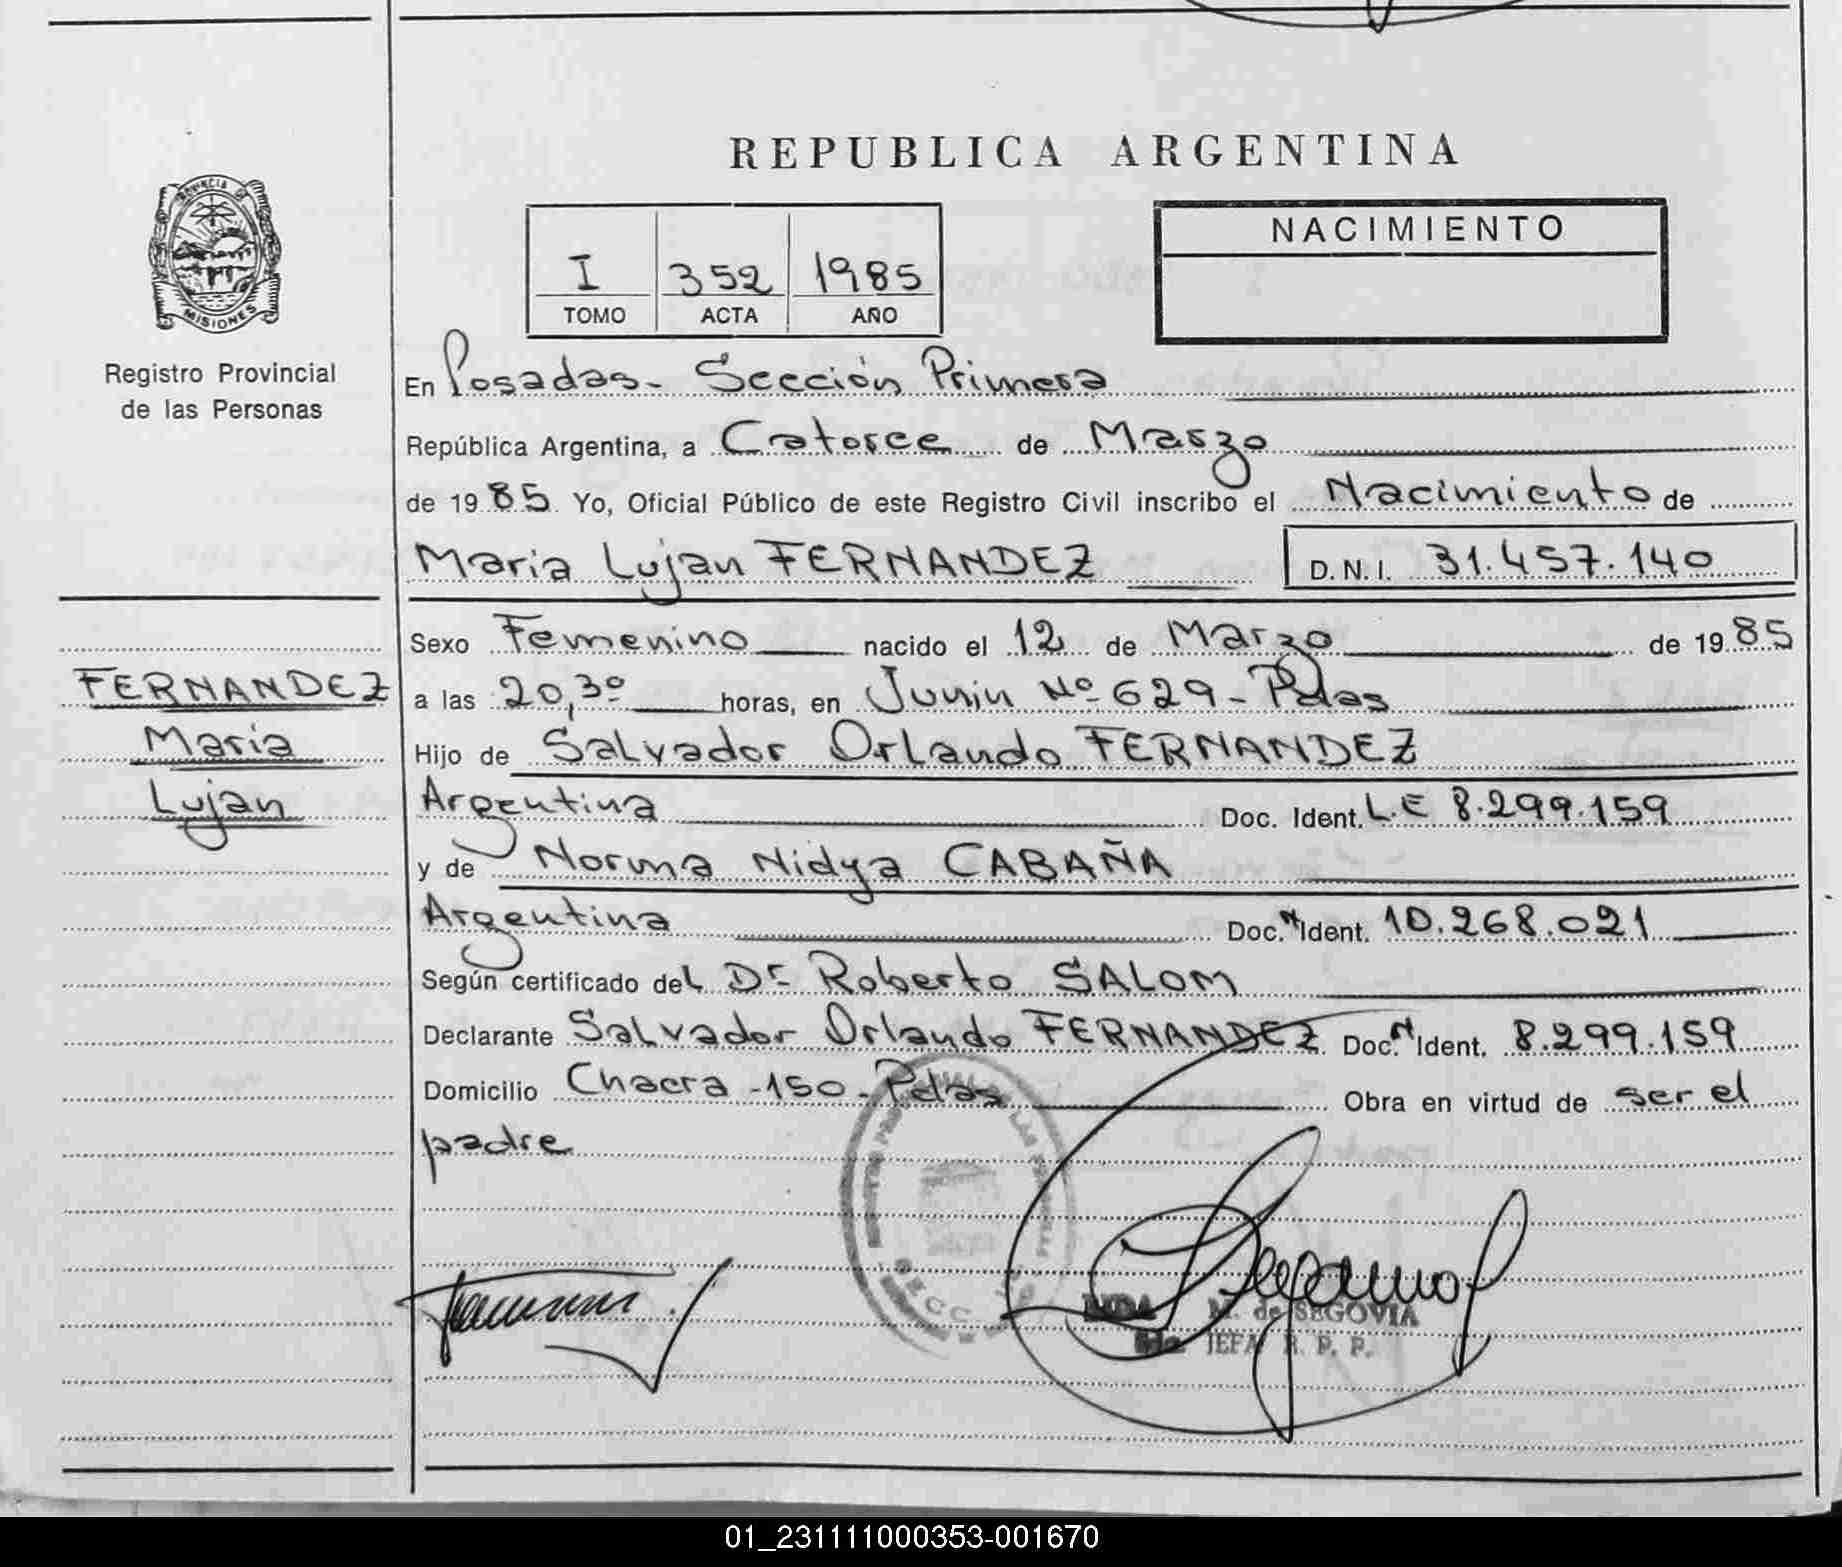 REPUBLICA ARGENTINA
PROVINCIA DE
MISIONES
Registro Provincial
de las Personas
I 352 1985
TOMO ACTA AÑO
NACIMIENTO
En Posadas- Sección Primera
República Argentina, a Catorce de Marzo
de 1985 Yo, Oficial Público de este Registro Civil inscribo el Nacimiento de
Maria Lujan FERNANDEZ D.N.I. 31.457.140
Sexo Femenino nacido el 12 de Marzo de 1985
a las 20,30 horas, en Junin Nº 629 - Pdas
Hijo de Salvador Orlando FERNANDEZ
Argentina Doc. Ident. L.E 8.299.159
y de Norma Nidya CABAÑA
Argentina Doc. N Ident. 10.268.021
Según certificado del Dr Roberto SALOM
Declarante Salvador Orlando FERNANDEZ Doc. N Ident. 8.299.159
Domicilio Chacra -150- Pdas Obra en virtud de ser el
padre
FERNANDEZ
Maria
Lujan
SECC.
LYDA M. de SEGOVIA
JEFA R. P. P.
01_231111000353-001670